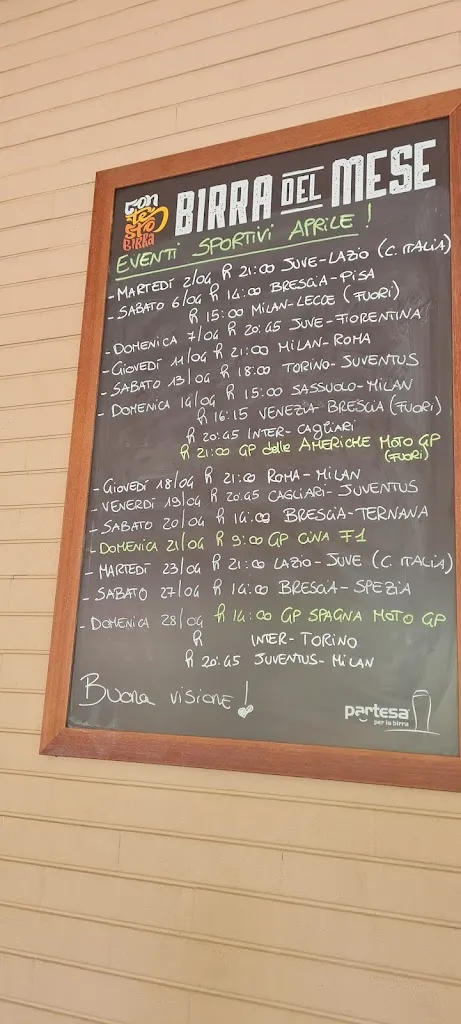 con
te
sto
BIRRA
BIRRA DEL MESE
EVENTI SPORTIVI APRILE!
- MARTEDÌ 2/04 h 21:00 JUVE-LAZIO (C. ITALIA)
- SABATO 6/04 h 14:00 BRESCIA-PISA
h 15:00 MILAN-LECCE (FUORI)
- DOMENICA 7/04 h 20:45 JUVE-FIORENTINA
- GIOVEDÌ 11/04 h 21:00 MILAN-ROMA
- SABATO 13/04 h 18:00 TORINO-JUVENTUS
- DOMENICA 14/04 h 15:00 SASSUOLO-MILAN
h 16:15 VENEZIA-BRESCIA (FUORI)
h 20:45 INTER-CAGLIARI
h 21:00 GP delle AMERICHE MOTO GP
(FUORI)
- GIOVEDÌ 18/04 h 21:00 ROMA-MILAN
- VENERDÌ 19/04 h 20:45 CAGLIARI-JUVENTUS
- SABATO 20/04 h 14:00 BRESCIA-TERNANA
- DOMENICA 21/04 h 9:00 GP CINA F1
- MARTEDÌ 23/04 h 21:00 LAZIO-JUVE (C. ITALIA)
- SABATO 27/04 h 14:00 BRESCIA-SPEZIA
- DOMENICA 28/04 h 14:00 GP SPAGNA MOTO GP
h INTER-TORINO
h 20:45 JUVENTUS-MILAN
Buona visione!
partesa
per la birra